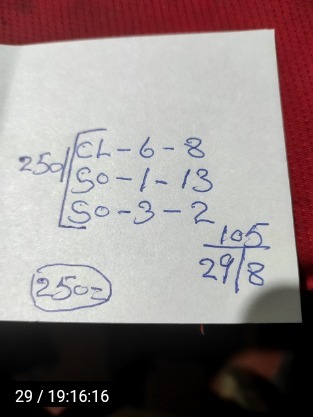 250 CL-6-8
SO-1-13
SO-3-2
105
29/8
250=
29 / 19:16:16